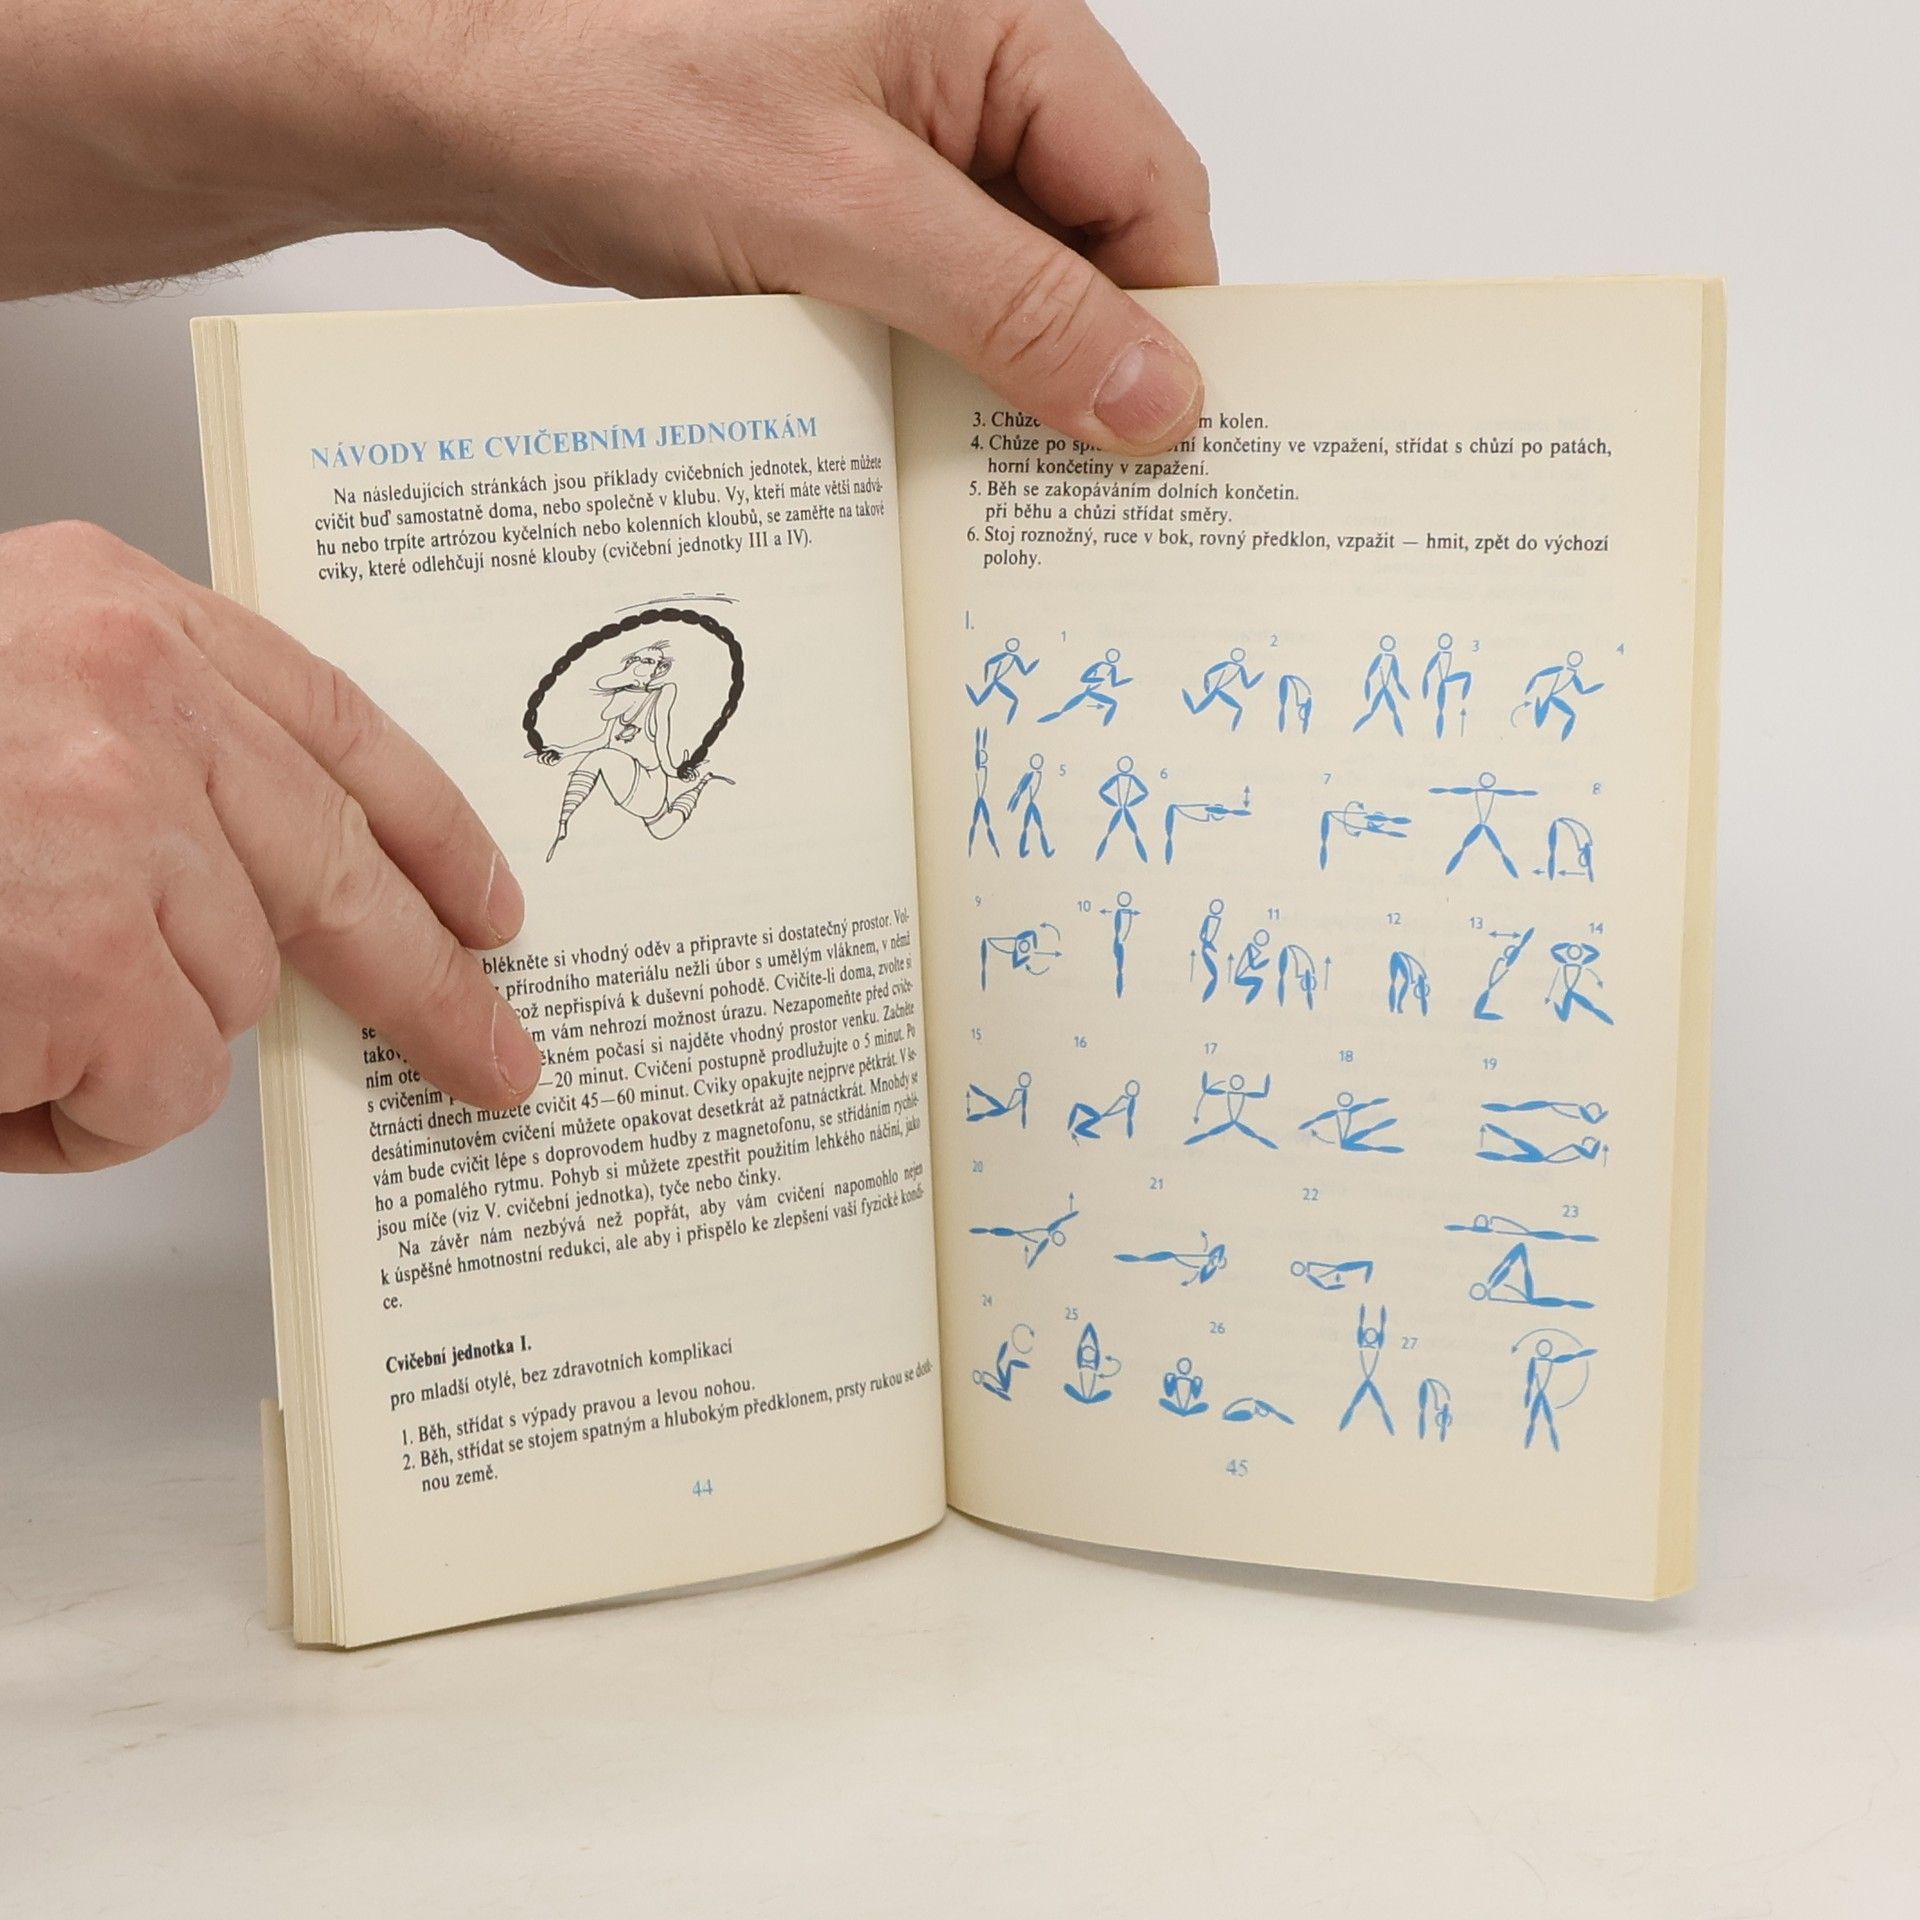 NÁVODY KE CVIČEBNÍM JEDNOTKÁM
Na následujících stránkách jsou příklady cvičebních jednotek, které můžete
cvičit buď samostatně doma, nebo společně v klubu. Vy, kteří máte větší nadvá-
hu nebo trpíte artrózou kyčelních nebo kolenních kloubů, se zaměřte na takové
cviky, které odlehčují nosné klouby (cvičební jednotky III a IV).
blékněte si vhodný oděv a připravte si dostatečný prostor. Vol-
přírodního materiálu nežli úbor s umělým vláknem, v němž
se což nepřispívá k duševní pohodě. Cvičíte-li doma, zvolte si
takov m vám nehrozí možnost úrazu. Nezapomeňte před cviče-
ním ote ěkném počasí si najděte vhodný prostor venku. Začněte
s cvičením —20 minut. Cvičení postupně prodlužujte o 5 minut. Po
čtrnácti dnech můžete cvičit 45—60 minut. Cviky opakujte nejprve pětkrát. V še-
desátiminutovém cvičení můžete opakovat desetkrát až patnáctkrát. Mnohdy se
vám bude cvičit lépe s doprovodem hudby z magnetofonu, se střídáním rychlé-
ho a pomalého rytmu. Pohyb si můžete zpestřit použitím lehkého náčiní, jako
jsou míče (viz V. cvičební jednotka), tyče nebo činky.
Na závěr nám nezbývá než popřát, aby vám cvičení napomohlo nejen
k úspěšné hmotnostní redukci, ale aby i přispělo ke zlepšení vaší fyzické kondi-
ce.
Cvičební jednotka I.
pro mladší otylé, bez zdravotních komplikací
1. Běh, střídat s výpady pravou a levou nohou.
2. Běh, střídat se stojem spatným a hlubokým předklonem, prsty rukou se dotk-
nou země.
44
3. Chůze m kolen.
4. Chůze po rní končetiny ve vzpažení, střídat s chůzí po patách,
horní končetiny v zapažení.
5. Běh se zakopáváním dolních končetin.
při běhu a chůzi střídat směry.
6. Stoj roznožný, ruce v bok, rovný předklon, vzpažit — hmit, zpět do výchozí
polohy.
I.
1 2 3 4
5 6 7 8
9 10 11 12 13 14
15 16 17 18 19
20 21 22 23
24 25 26 27
45